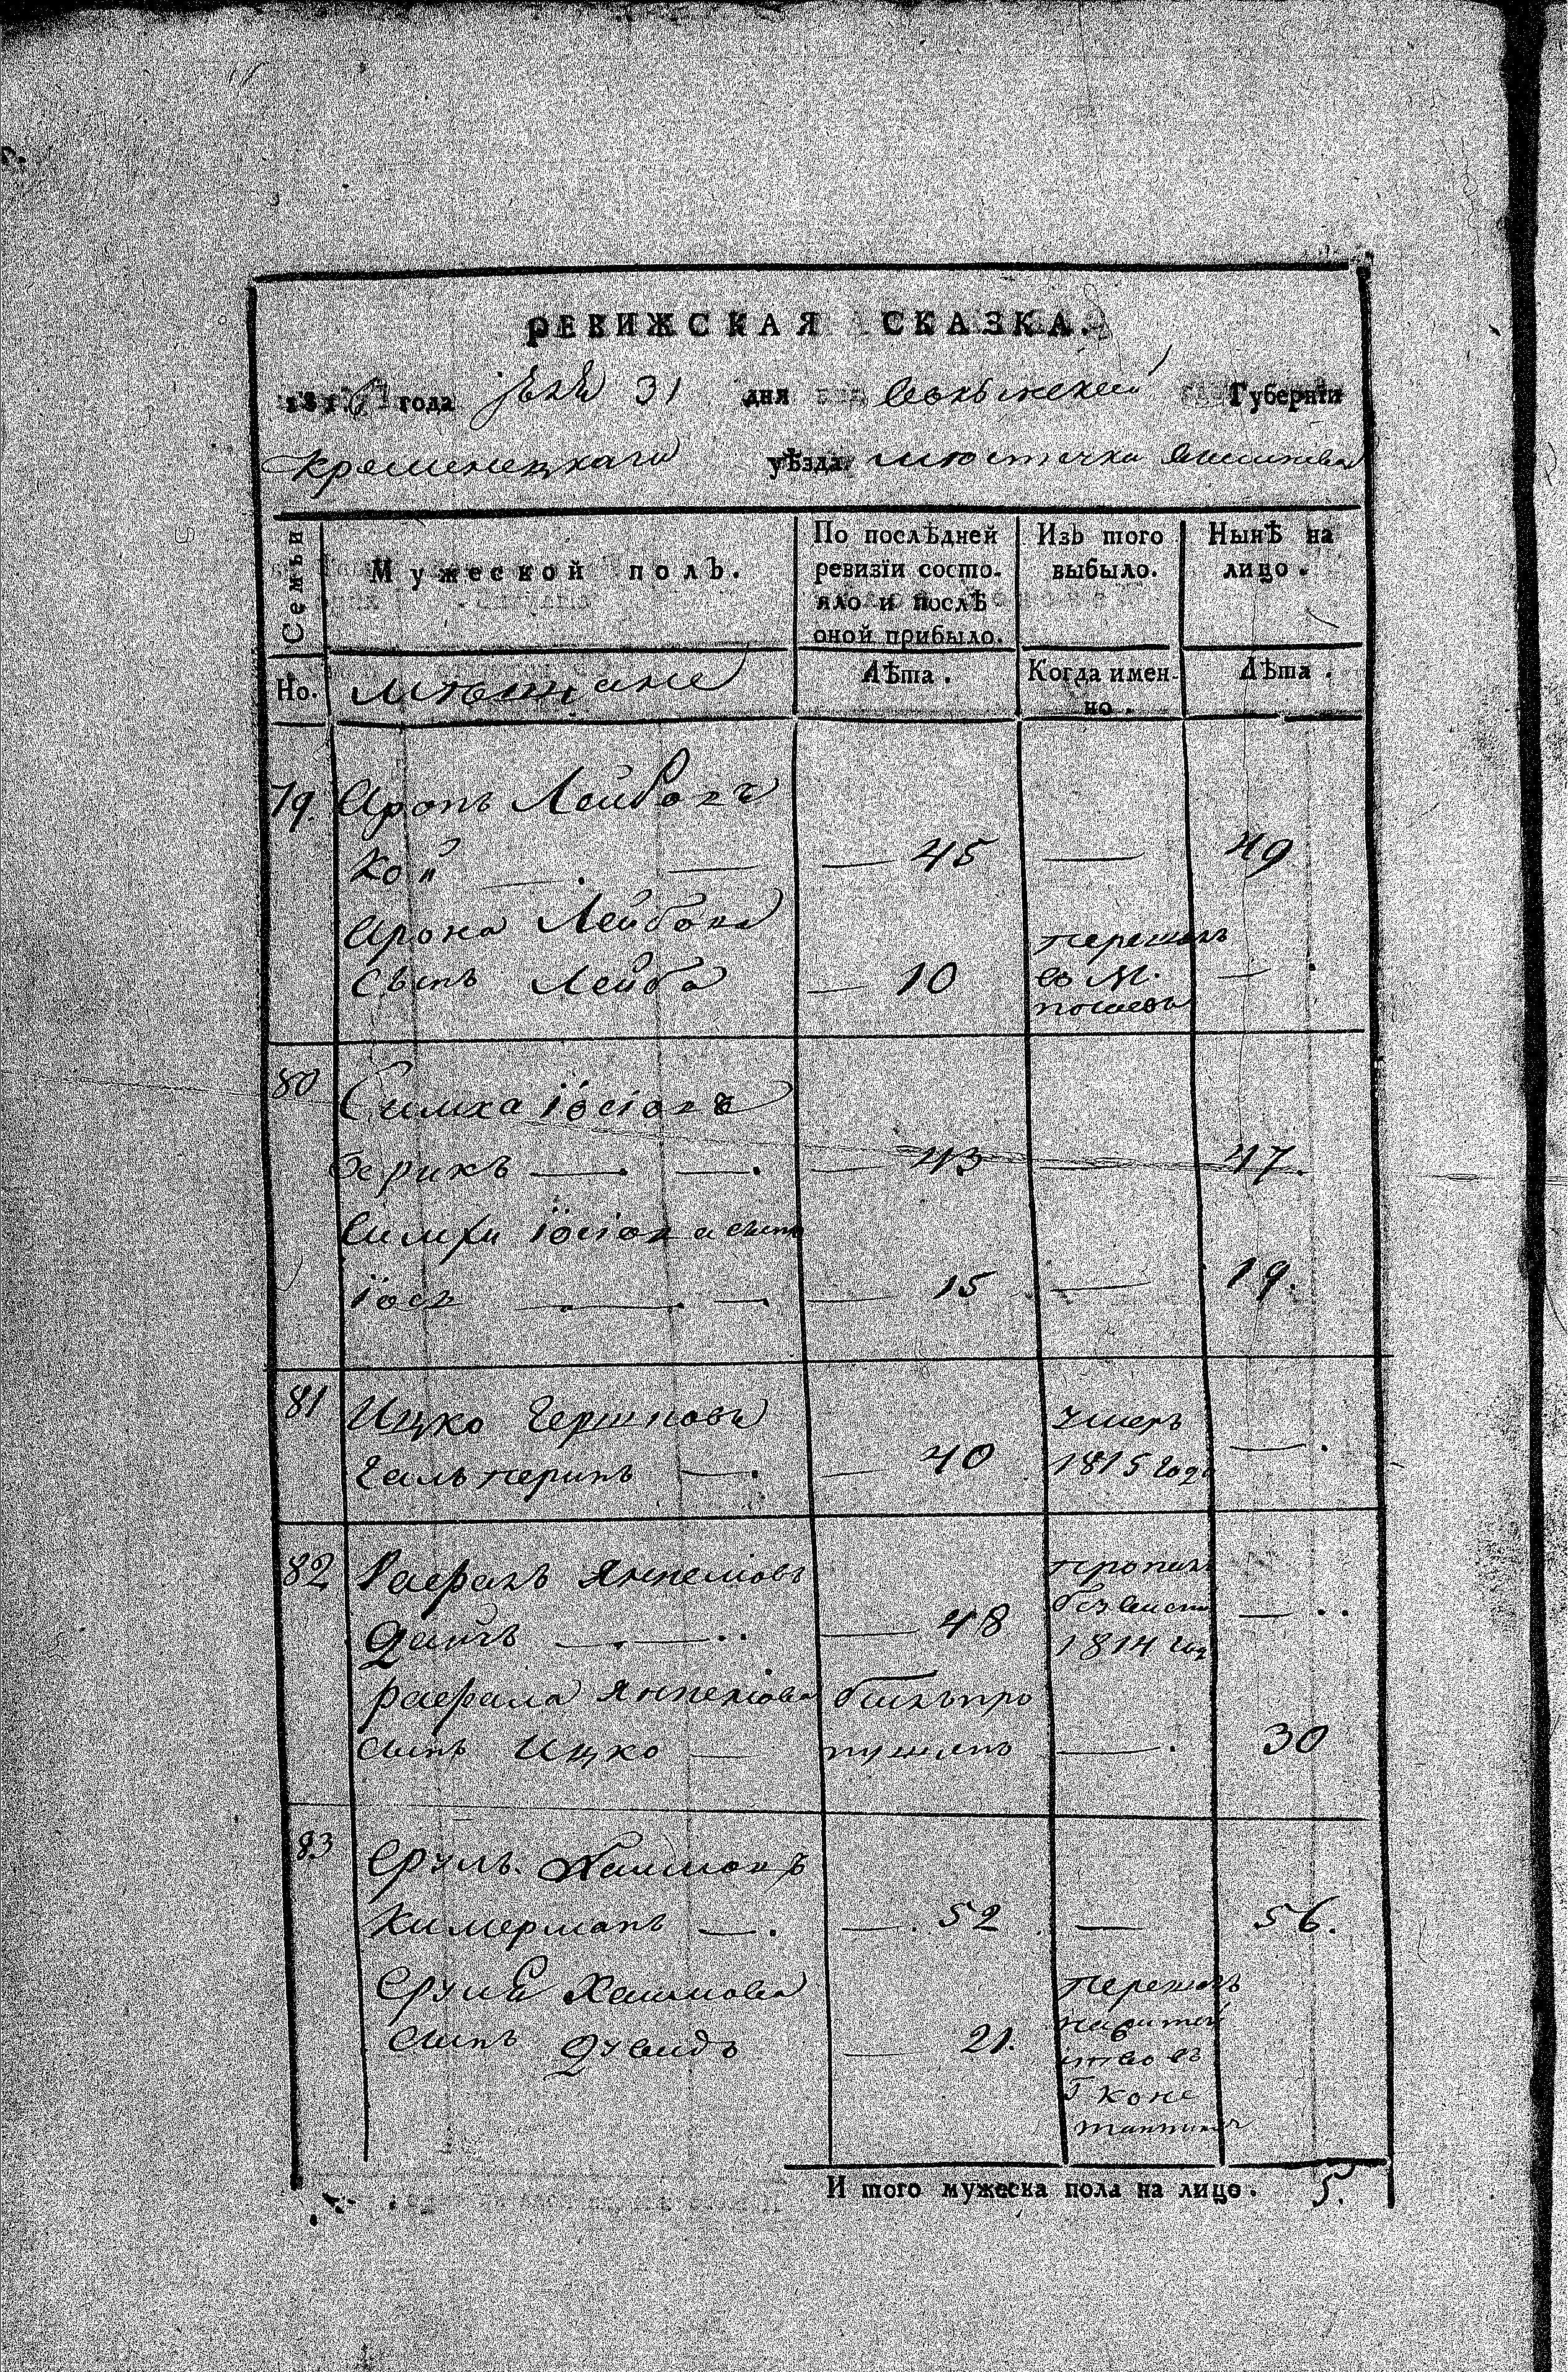 РЕВИЖСКАЯ СКАЗКА.
181 года 31 дня Волынской Губернїи
Кременецкаго уѣзда мюстечка
Семьи
Мужеской полъ.
По послѣдней ревизїи состо-
яло и послѣ
оной прибыло.
Изъ того
выбыло.
Нынѣ на
лицо.
Но.
мющане
Лѣта.
Когда имен-
но.
Лѣта.
79. Аронъ Лейбовъ
Кои — — 45 — 49
Арона Лейбова
сынъ Лейба — 10 перешолъ
в М. —
80 Симха Іосіовъ
— — — 43 — 47.
Симхи Іосіова сынъ
Іось — — — 15 — 19.
81 Ицко Гершковъ
Гальперинъ — — 40 умеръ
1815 года —.
82 Рафалъ Янкелювъ
Дайчъ — — — 48 пропалъ
безвисти
1814 год —
рафала Янкелюва былъ про
сынъ Ицко — пущенъ —. 30
83 Сруль Хаимовъ
Кимерманъ —. —. 52 — 56.
Сруля Хаимова
сынъ Дувидъ — 21. перешолъ
на житей
ство въ
Г Конс
тантинов
И того мужеска пола на лицо. 5.